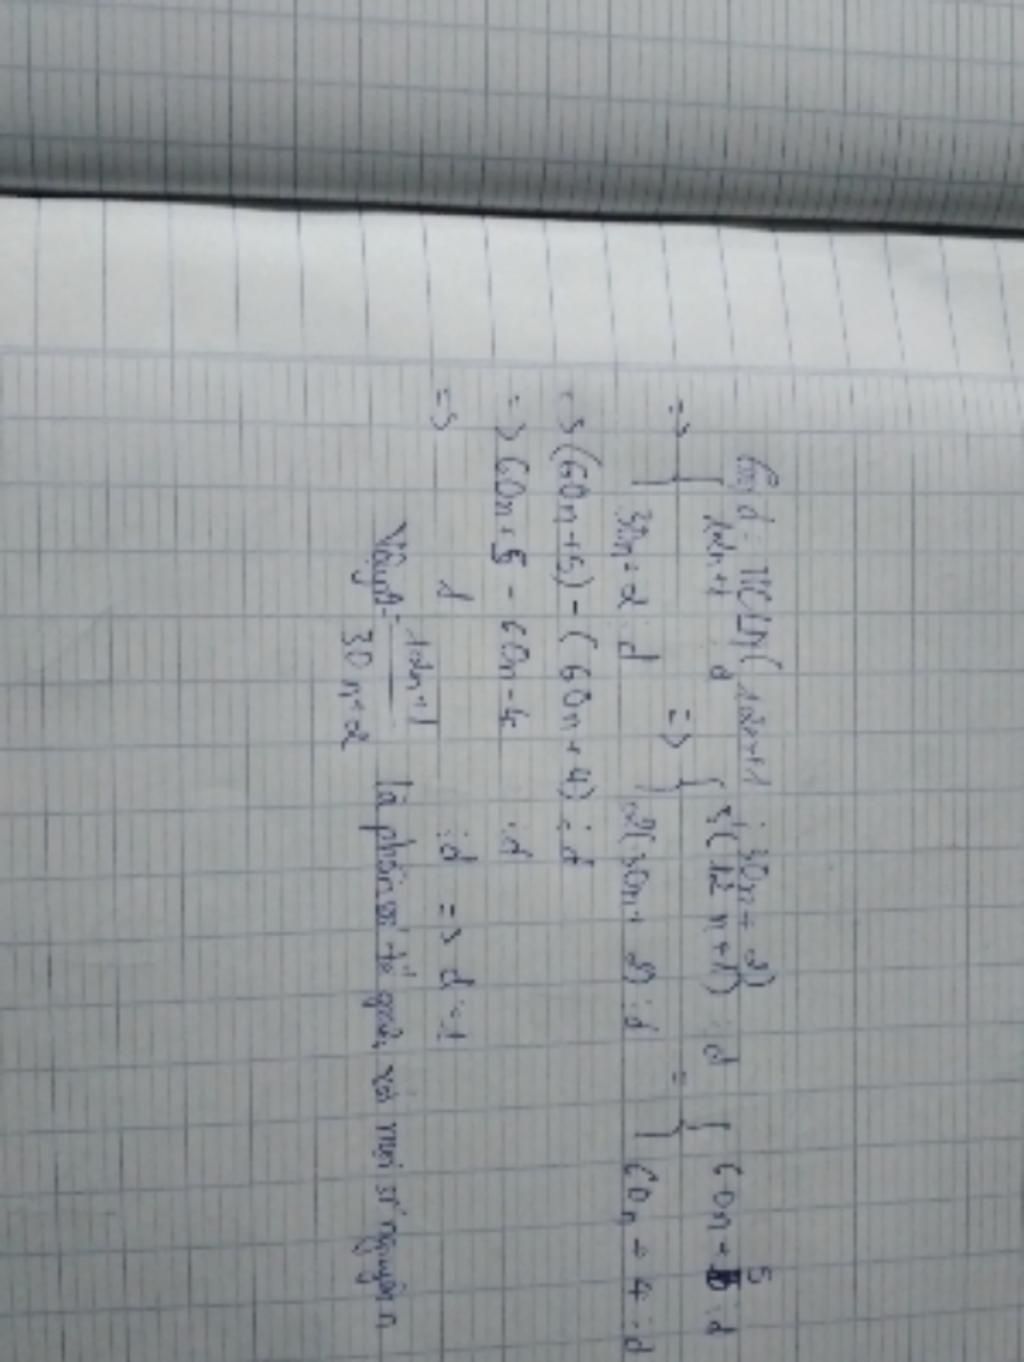 Gọi d = ƯCLN(12n+1; 30n+2)
=> { 12n+1 ⋮ d => { 5(12n+1) ⋮ d = { 60n+5 ⋮ d
30n+2 ⋮ d 2(30n+2) ⋮ d 60n+4 ⋮ d
=> (60n+5) - (60n+4) ⋮ d
=> 60n+5 - 60n-4 ⋮ d
=> 1 ⋮ d => d = 1
Vậy 12n+1 / 30n+2 là phân số tối giản với mọi số nguyên n